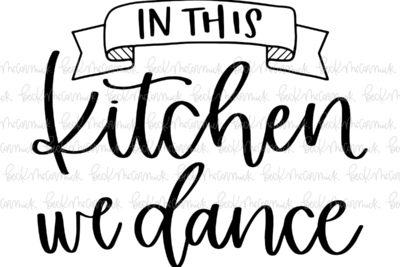 IN THIS
kitchen
we dance